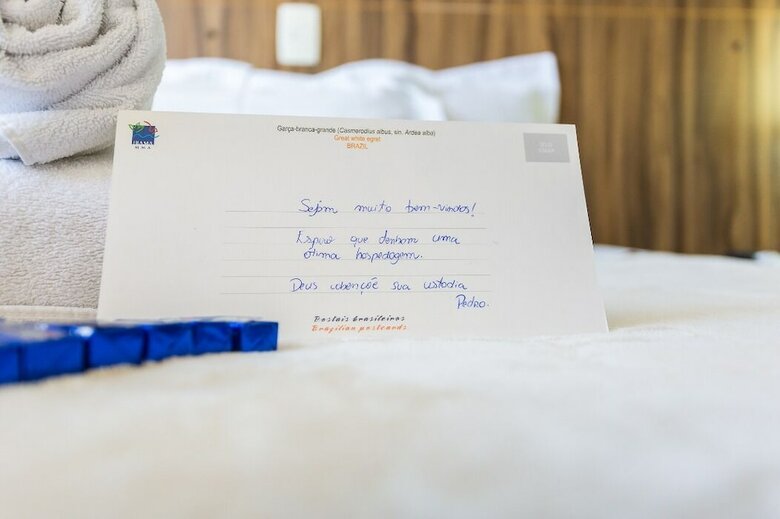 Garça-branca-grande (Casmerodius albus, sin. Ardea alba)
Great white egret
BRAZIL
IBAMA
M M A
SELO
STAMP
Sejam muito bem-vindos!
Espero que tenham uma
ótima hospedagem.
Deus abençõe sua estadia
Pedro.
Postais brasileiros
Brazilian postcards